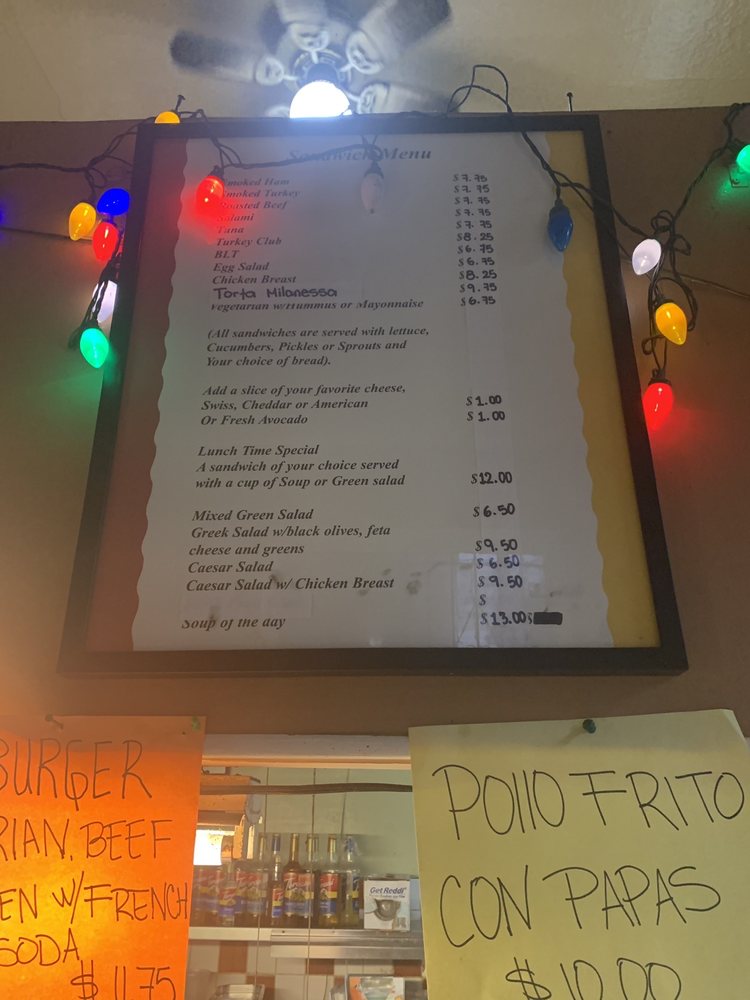 Sandwich Menu
Smoked Ham $ 7.75
Smoked Turkey $ 7.75
Roasted Beef $ 7.75
Salami $ 7.75
Tuna $ 7.75
Turkey Club $ 8.25
BLT $ 6.75
Egg Salad $ 6.75
Chicken Breast $ 8.25
Torta Milanessa $ 9.75
Vegetarian w/Hummus or Mayonnaise $ 6.75
(All sandwiches are served with lettuce,
Cucumbers, Pickles or Sprouts and
Your choice of bread).
Add a slice of your favorite cheese,
Swiss, Cheddar or American $ 1.00
Or Fresh Avocado $ 1.00
Lunch Time Special
A sandwich of your choice served
with a cup of Soup or Green salad $12.00
Mixed Green Salad $ 6.50
Greek Salad w/black olives, feta
cheese and greens $ 9.50
Caesar Salad $ 6.50
Caesar Salad w/ Chicken Breast $ 9.50
$
Soup of the day $ 13.00 $
BURGER
RIAN, BEEF
EN W/FRENCH
SODA
$ 11.75
Get Reddi
POllO FRITO
CON PAPAS
$10.00